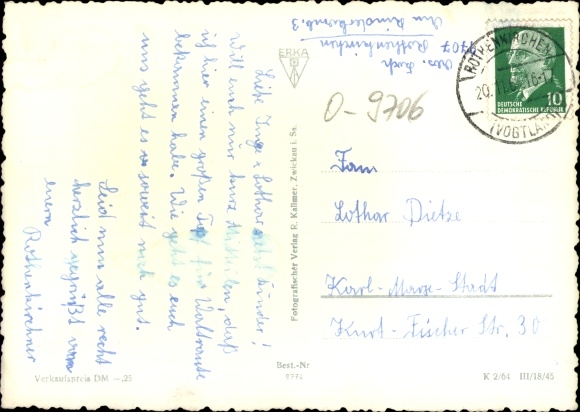 Liebe Inge, Lothar nebst Kinder!
Will euch nur kurz Mitteilen, daß
ich hier einen großen Topf für Waltraute
bekommen habe. Wie geht es euch
uns geht es soweit noch gut.
Seid nun alle recht
herzlich gegrüßt von
euern
Rothenkirchner
Verkaufspreis DM -,25
ERKA
Fotografischer Verlag R. Kallmer, Zwickau i. Sa.
Best.-Nr
9774
Rothenkirchen
9707
O-9706
ROTHENKIRCHEN
(VOGTLAND)
10
DEUTSCHE
DEMOKRATISCHE REPUBLIK
Fam
Lothar Dietze
Karl-Marx-Stadt
Kurt-Fischer Str. 30
K 2/64 III/18/45